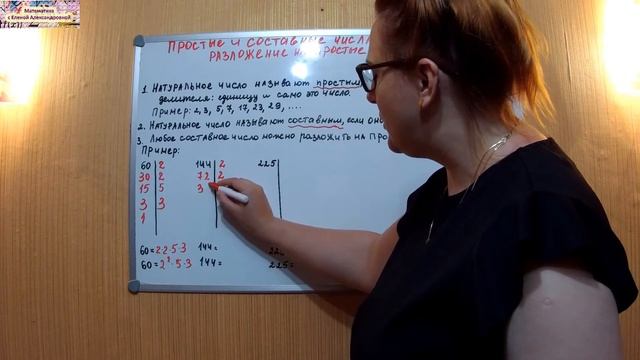 Математика
с Еленой Александровной
ПРОСТЫЕ И СОСТАВНЫЕ ЧИСЛА
РАЗЛОЖЕНИЕ НА ПРОСТЫЕ
1. НАТУРАЛЬНОЕ ЧИСЛО НАЗЫВАЮТ ПРОСТЫМ,
делителя: единицу и само это число.
Пример: 2, 3, 5, 7, 17, 23, 29, ....
2. НАТУРАЛЬНОЕ ЧИСЛО НАЗЫВАЮТ СОСТАВНЫМ, ЕСЛИ ОНО
3. Любое СОСТАВНОЕ ЧИСЛО МОЖНО РАЗЛОЖИТЬ НА ПРО
Пример:
60 2 144 2 225
30 2 72 2
15 5 3
3 3
1
60 = 2·2·5·3 144 = 22
60 = 2²·5·3 144 = 225 =